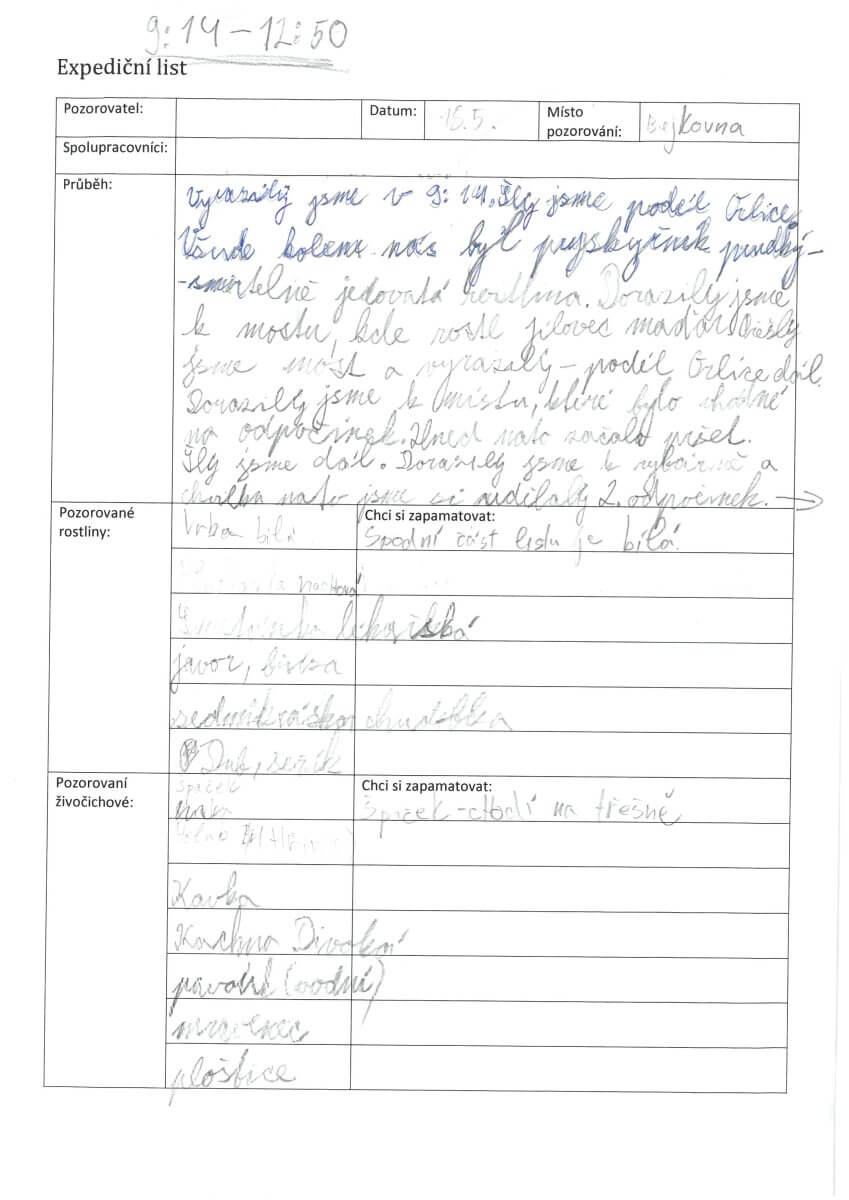 9:14-12:50
Expediční list
Pozorovatel:
Datum: 15.5. Místo pozorování: Bejkovna
Spolupracovníci:
Průběh:
Vyrazily jsme v 9:14. Šly jsme podél Orlice.
Všude kolem nás byl pryskyřník prudký-
-smrtelně jedovatá rostlina. Dorazily jsme
k mostu, kde rostl jilovec maďal. Přešly
jsme most a vyrazily - podél Orlice dál.
Dorazily jsme k místu, které bylo vhodné
na odpočinek. Ihned nato začalo pršet.
Šly jsme dál. Dorazily jsme k rybárně a
chvilku nato jsme si udělaly 2. odpočinek. →
Pozorované rostliny:
Chci si zapamatovat:
Vrba bílá
Spodní část listu je bílá.
nachová
lékařská
javor, bříza
sedmikráska chudobka
Dub, šeřík
Pozorovaní živočichové:
Chci si zapamatovat:
Špaček
Špaček - chodí na třešně
Kavka
Kachna Divoká
pavouk (vodní)
mravenec
ploštice